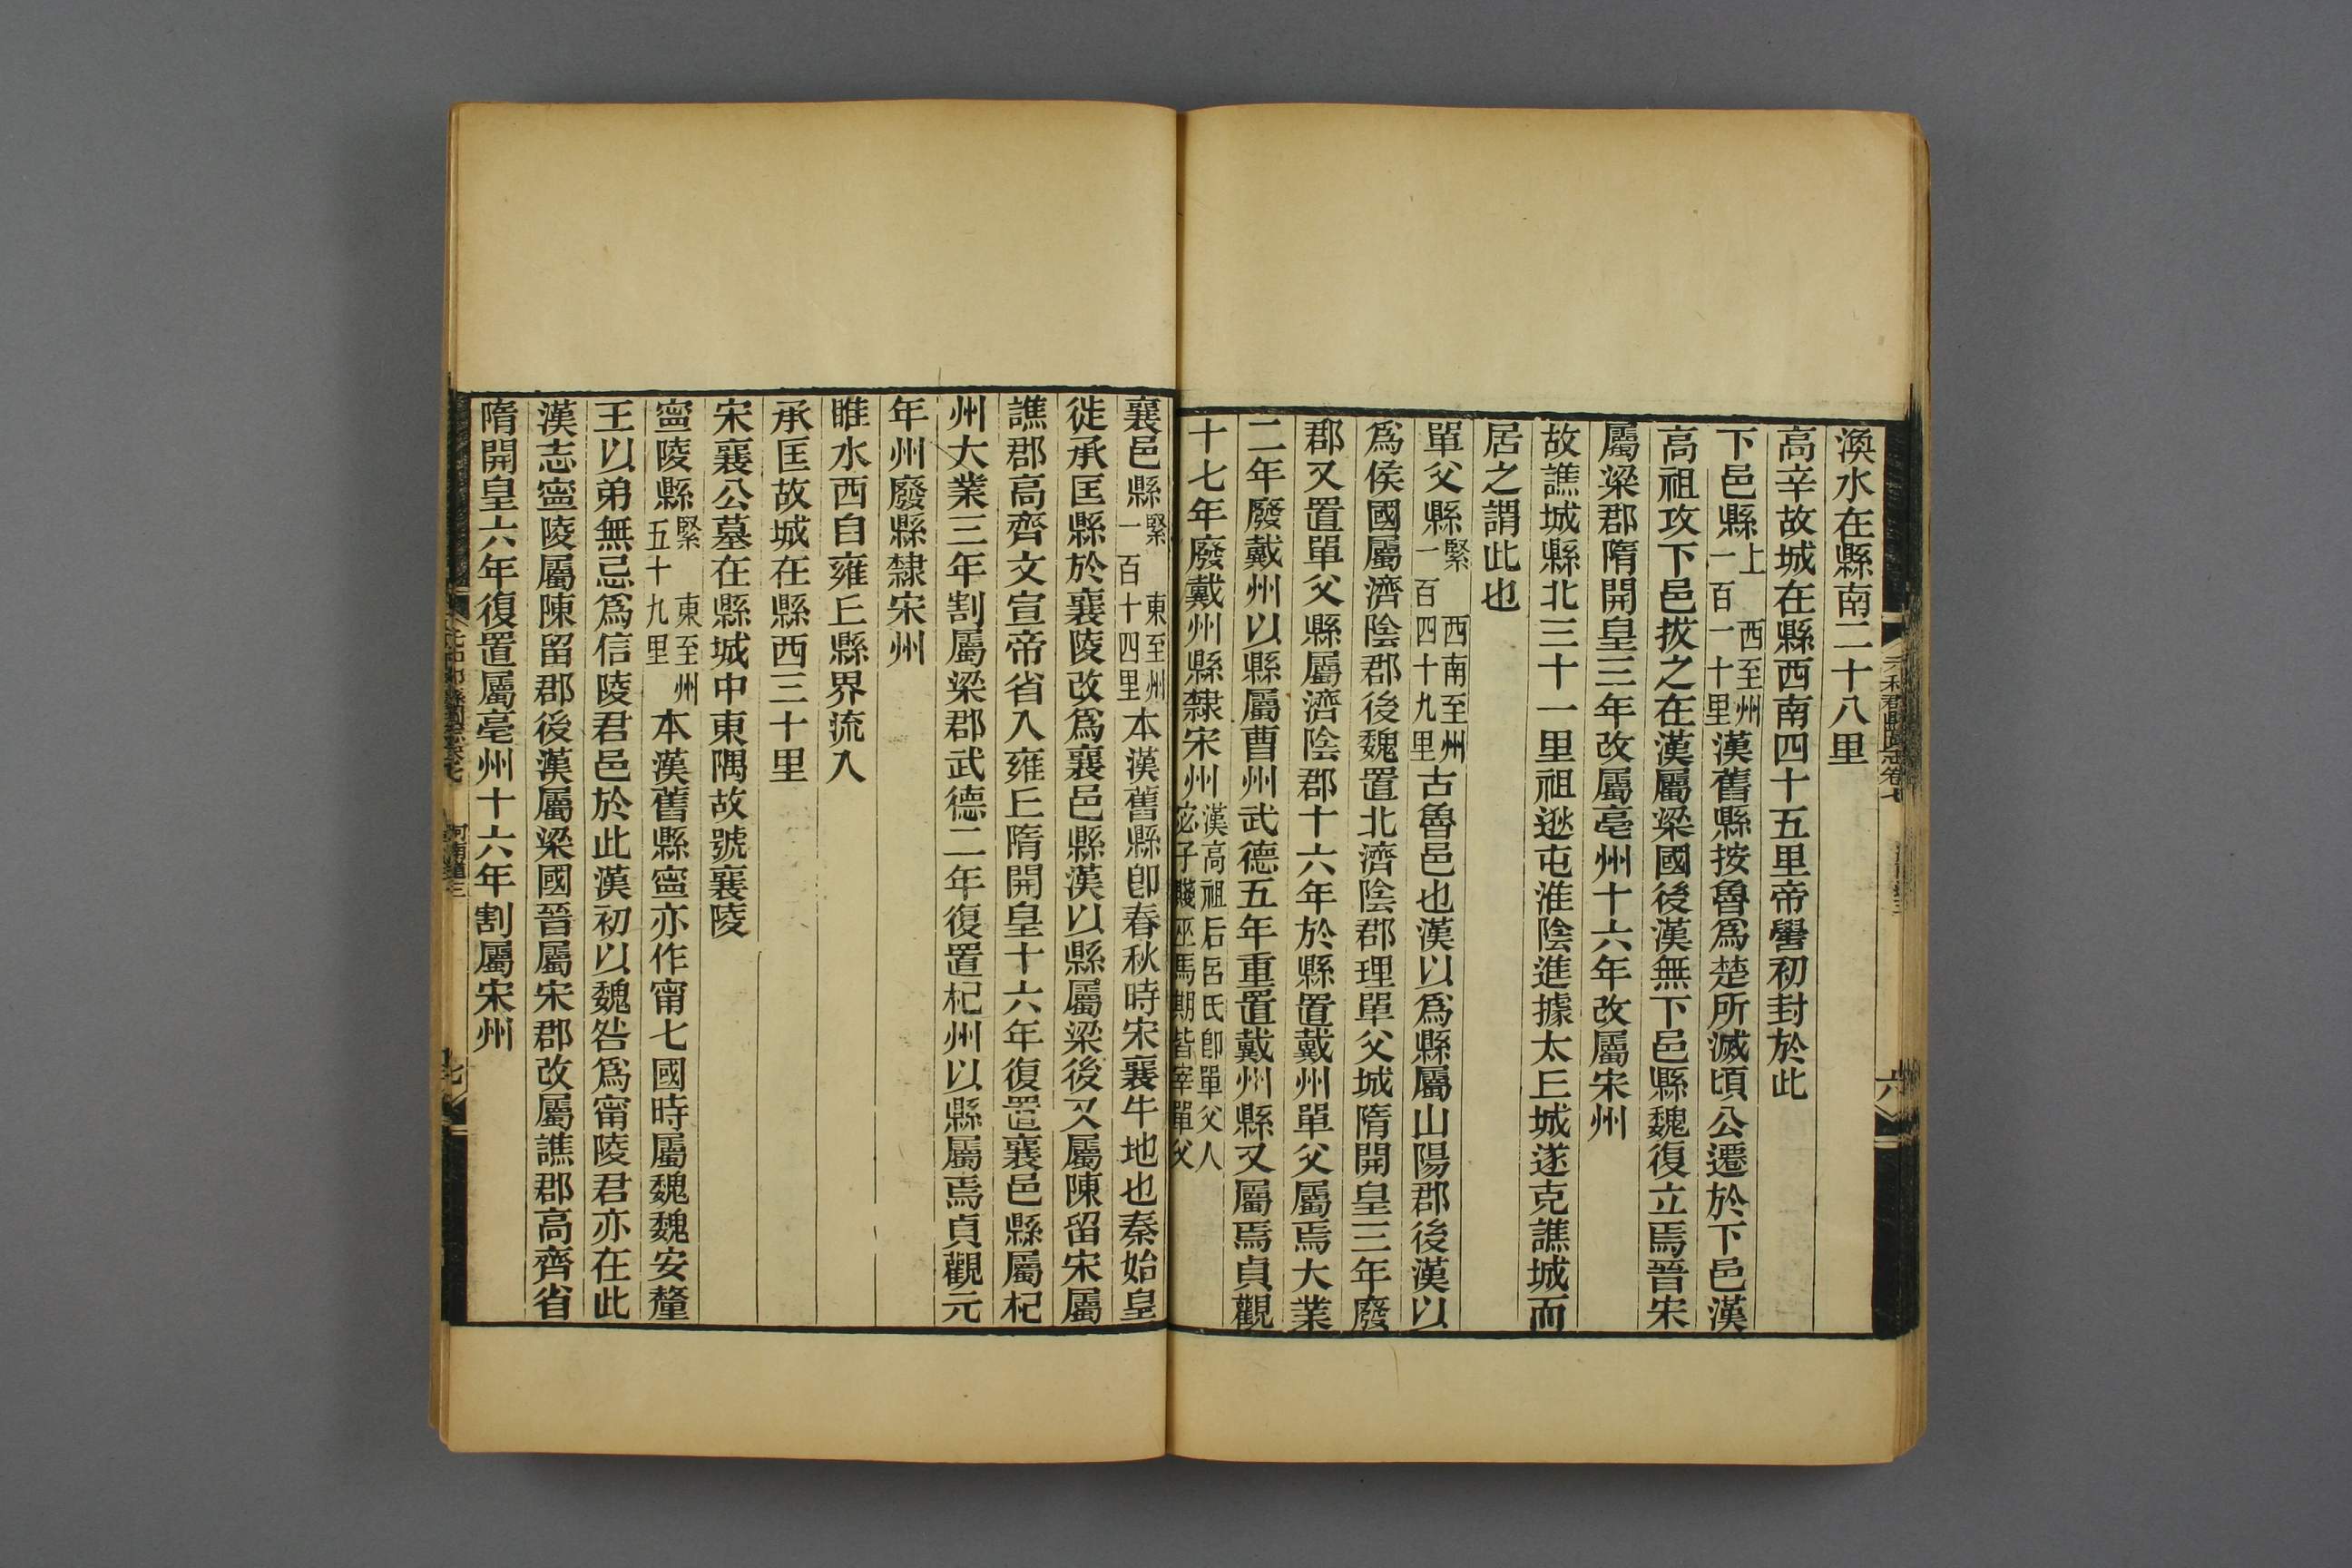 渙水在縣南二十八里
高辛故城在縣西南四十五里帝嚳初封於此
下邑縣上 西至州一百一十里漢舊縣按魯爲楚所滅頃公遷於下邑漢
高祖攻下邑拔之在漢屬梁國後漢無下邑縣魏復立焉晉宋
屬梁郡隋開皇三年改屬亳州十六年改屬宋州
故譙城縣北三十一里祖逖屯淮陰進據太丘城遂克譙城而
居之謂此也
單父縣緊 西南至州一百四十九里古魯邑也漢以爲縣屬山陽郡後漢以
爲侯國屬濟陰郡後魏置北濟陰郡理單父城隋開皇三年廢
郡又置單父縣屬濟陰郡十六年於縣置戴州單父屬焉大業
二年廢戴州以縣屬曹州武德五年重置戴州縣又屬焉貞觀
十七年廢戴州縣隸宋州漢高祖后呂氏卽單父人宓子賤巫馬期皆宰單父
襄邑縣緊 東至州一百十四里本漢舊縣卽春秋時宋襄牛地也秦始皇
徙承匡縣於襄陵改爲襄邑縣漢以縣屬梁後又屬陳留宋屬
譙郡高齊文宣帝省入雍丘隋開皇十六年復置襄邑縣屬杞
州大業三年割屬梁郡武德二年復置杞州以縣屬焉貞觀元
年州廢縣隸宋州
睢水西自雍丘縣界流入
承匡故城在縣西三十里
宋襄公墓在縣城中東隅故號襄陵
寧陵縣緊 東至州五十九里 本漢舊縣寧亦作甯七國時屬魏魏安釐
王以弟無忌爲信陵君邑於此漢初以魏咎爲甯陵君亦在此
漢志寧陵屬陳留郡後漢屬梁國晉屬宋郡改屬譙郡高齊省
隋開皇六年復置屬亳州十六年割屬宋州